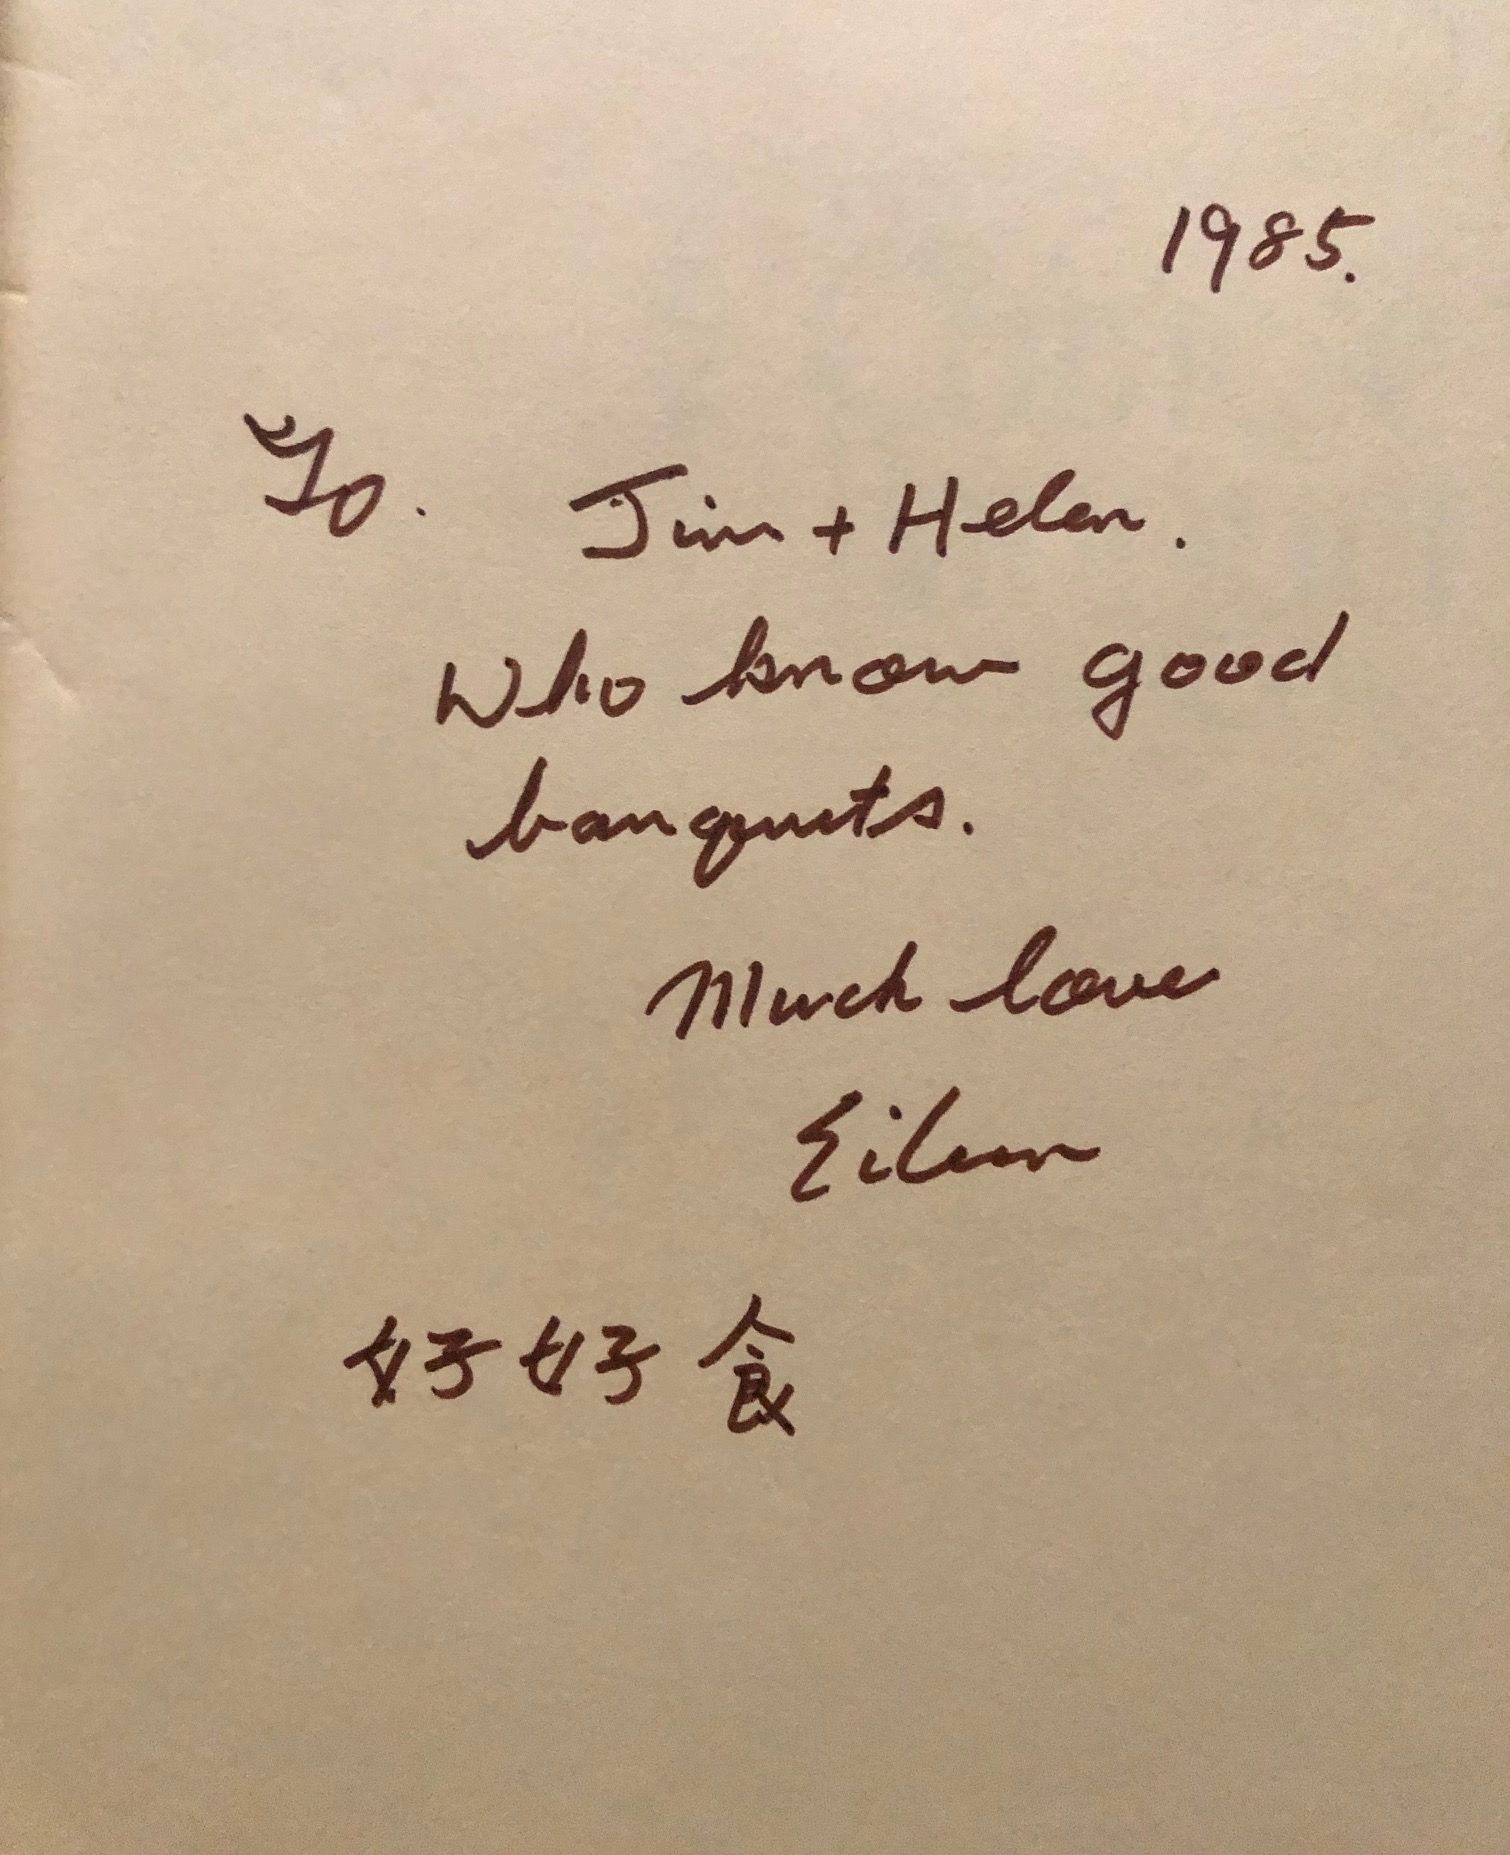 1985.
To. Jim + Helen.
Who know good
banquets.
Much love
Eileen
好好食